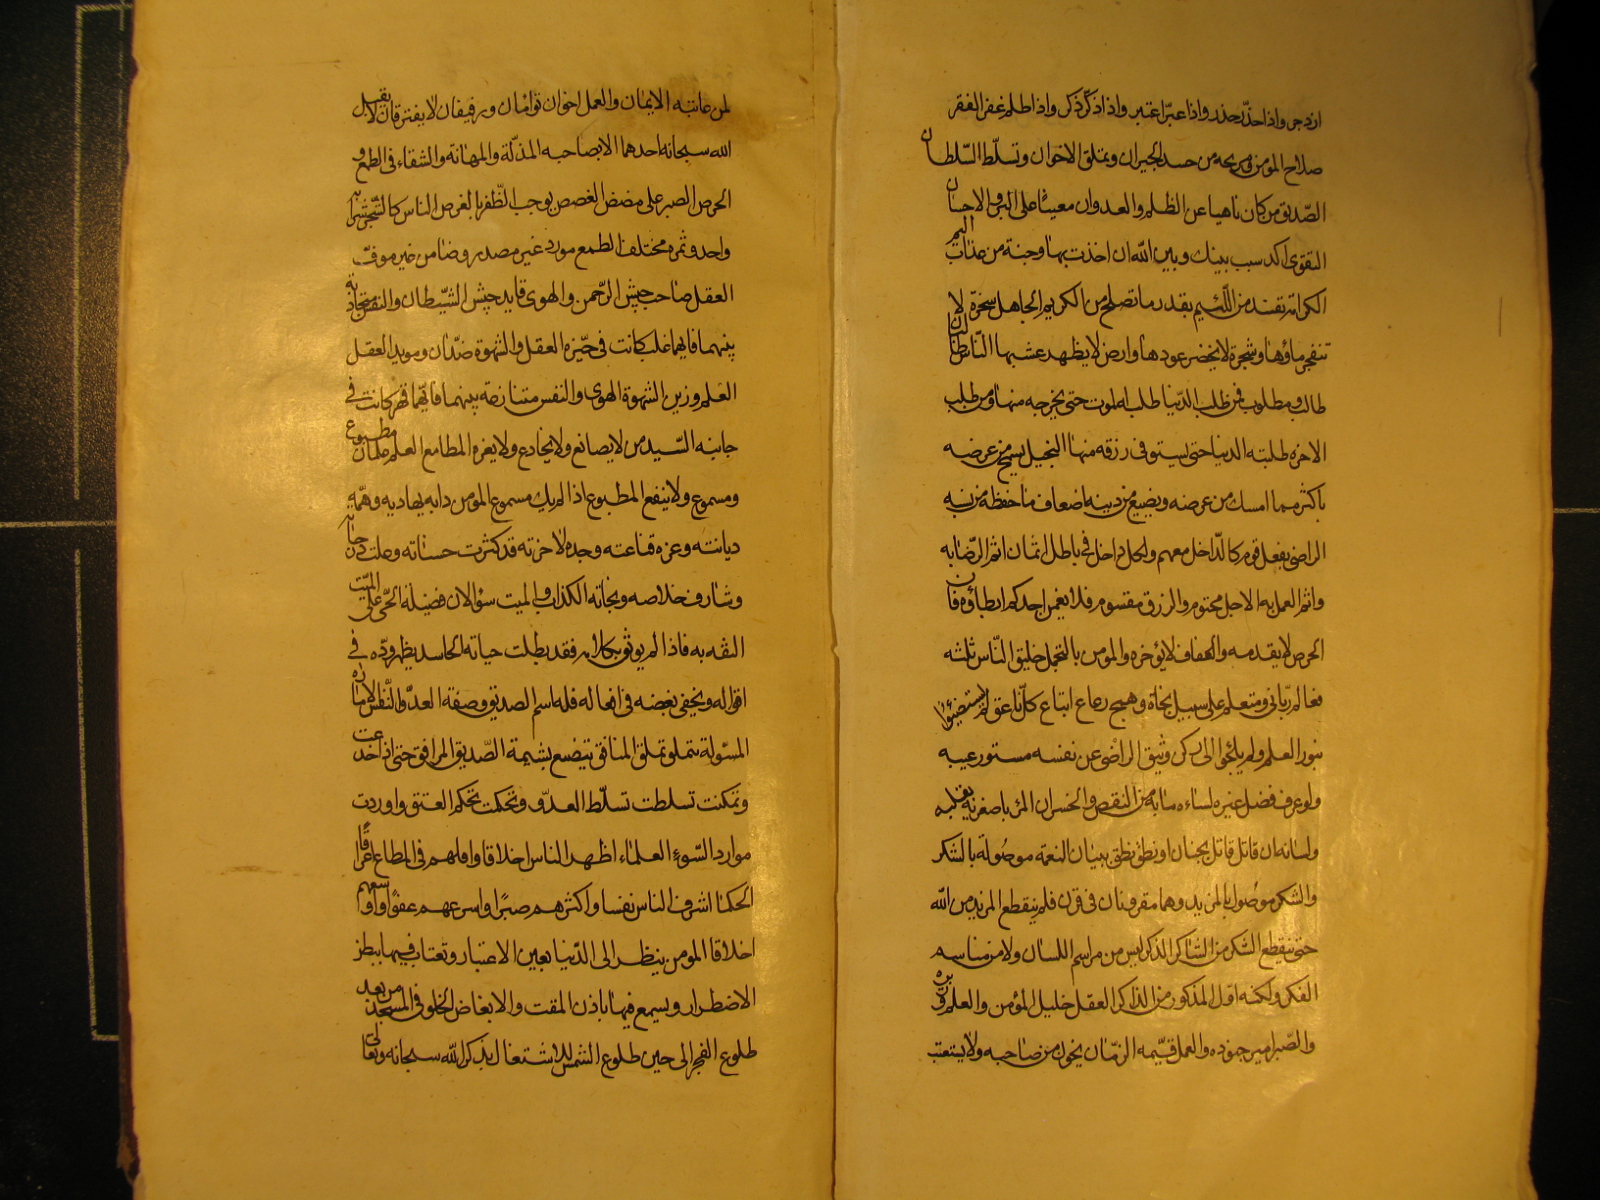 ازدجر واذا حذّر حذر واذا عبّر اعتبر واذا ذكّر ذكر واذا ظلم غفر الفقر
صلاح المؤمن ومريحه من حسد الجيران وتملق الاخوان وتسلّط السّلطان
الصّديق من كان ناهيا عن الظلم والعدوان معينًا على البر والاحسان
التقوى اكد سبب بينك وبين الله ان اخذت بها وجنة من عذاب اليم
الكرامة تفسد من اللّئيم بقدر ما تصلح من الكريم الجاهل صخرة لا
تنفجر ماؤها وشجرة لا يخضر عودها وارض لا يظهر عشبها الناس طالبان
طالب ومطلوب فمن طلب الدّنيا طلبه الموت حتى يخرجه منها ومن طلب
الاخرة طلبته الدنيا حتى يستوفى رزقه منها البخيل يسمح من عرضه
باكثر مما امسك من عرضه ويضيع من دينه اضعاف ما حفظه من نسبه
الراضى بفعل قوم كالدّاخل معهم ولكل داخل فى باطل اثمان اثم الرّضا به
واثم العمل به الاجل محتوم والرزق مقسوم فلا يغمن احدكم ابطاؤه فان
الحرص لا يقدمه والعفاف لا يؤخره والمومن بالتجمل خليق النّاس ثلثه
فعالم ربّانى ومتعلم على سبيل نجاة وهمج رعاع اتباع كلّ ناعق لم يستضيئوا
بنور العلم ولم يلجئوا الى ركن وثيق الراضى عن نفسه مستور عيبه
ولو عرف فضل غيره لساءه ما به من النقص والخسران المرء باصغريه بقلبه
ولسانه ان قاتل قاتل بجنان او نطق نطق ببيان النعمة موصولة بالشكر
والشكر موصول بالمزيد وهما مقرونان فى قرن فلم ينقطع المزيد من الله
حتى ينقطع الشكر من الشاكر الذكر ليس من مراسم اللسان ولا من مناسم
الفكر ولكنه اول المذكور من الذاكر العقل خليل المؤمن والعلم وزيره
والصّبر امير جنوده والعمل قيّمه الزمان يخون من صاحبه ولا يستعتب
لمن عاتبه الايمان والعمل اخوان توامان ورفيقان لا يفترقان لا يقبل
الله سبحانه احدهما الا بصاحبه المذلّة والمهانة والشقاء فى الطمع و
الحرص الصبر على مضض الغصص يوجب الظّفر بالفرص الناس كالشّجر شرابه
واحد وثمره مختلف الطمع مورد غير مصدر وضامن غير موفّ
العقل صاحب جيش الرّحمن والهوى قايد جيش الشيّطان والنفس متجاذبة
بينهما فايهما غلب كانت فى حيّزه العقل والشهوة ضدّان ومويد العقل
العلم وزين الشهوة الهوى والنفس متنازعة بينهما فايّهما قهر كانت فى
جانبه السّيد من لا يصانع ولا يخادع ولا يغره المطامع العلم علمان مطبوع
ومسموع ولا ينفع المطبوع اذا لم يك مسموع المومن دابه يهاديه وهمّه
ديانته وعزه قناعته وجده لاخرته قد كثرت حسناته وعلت درجاته
وشارف خلاصه ونجاته الكذاب والميت سواء لان فضيلة الحّى على الميّت
الثقه به فاذا لم يوثق بكلامه فقد بطلت حياته الحاسد يظهر ودّه فى
اقواله ويخفى بغضه فى افعاله فله اسم الصديق وصفة العدوّ النّفس الامّاره
المسوّلة تتملق تملق المنافق تتصنع بشيمة الصّديق الموافق حتى اذا خدعت
وتمكنت تسلطت تسلّط العدوّ وتحكمت تحكم العتو واوردت
موارد السّوء العلماء اظهر الناس اخلاقا واقلهم فى المطاع اعراقًا
الحكما اشرف الناس نفسا واكثرهم صبرًا واسرعهم عفوًا واوسعهم
اخلاقا المومن ينظر الى الدّنيا بعين الاعتبار ويقتات فيها ببطن
الاضطرار ويسمع فيها باذن المقت والابغاض الجلوس فى المسجد من بعد
طلوع الفجر الى حين طلوع الشمس للاشتغال بذكر الله سبحانه وتعالى